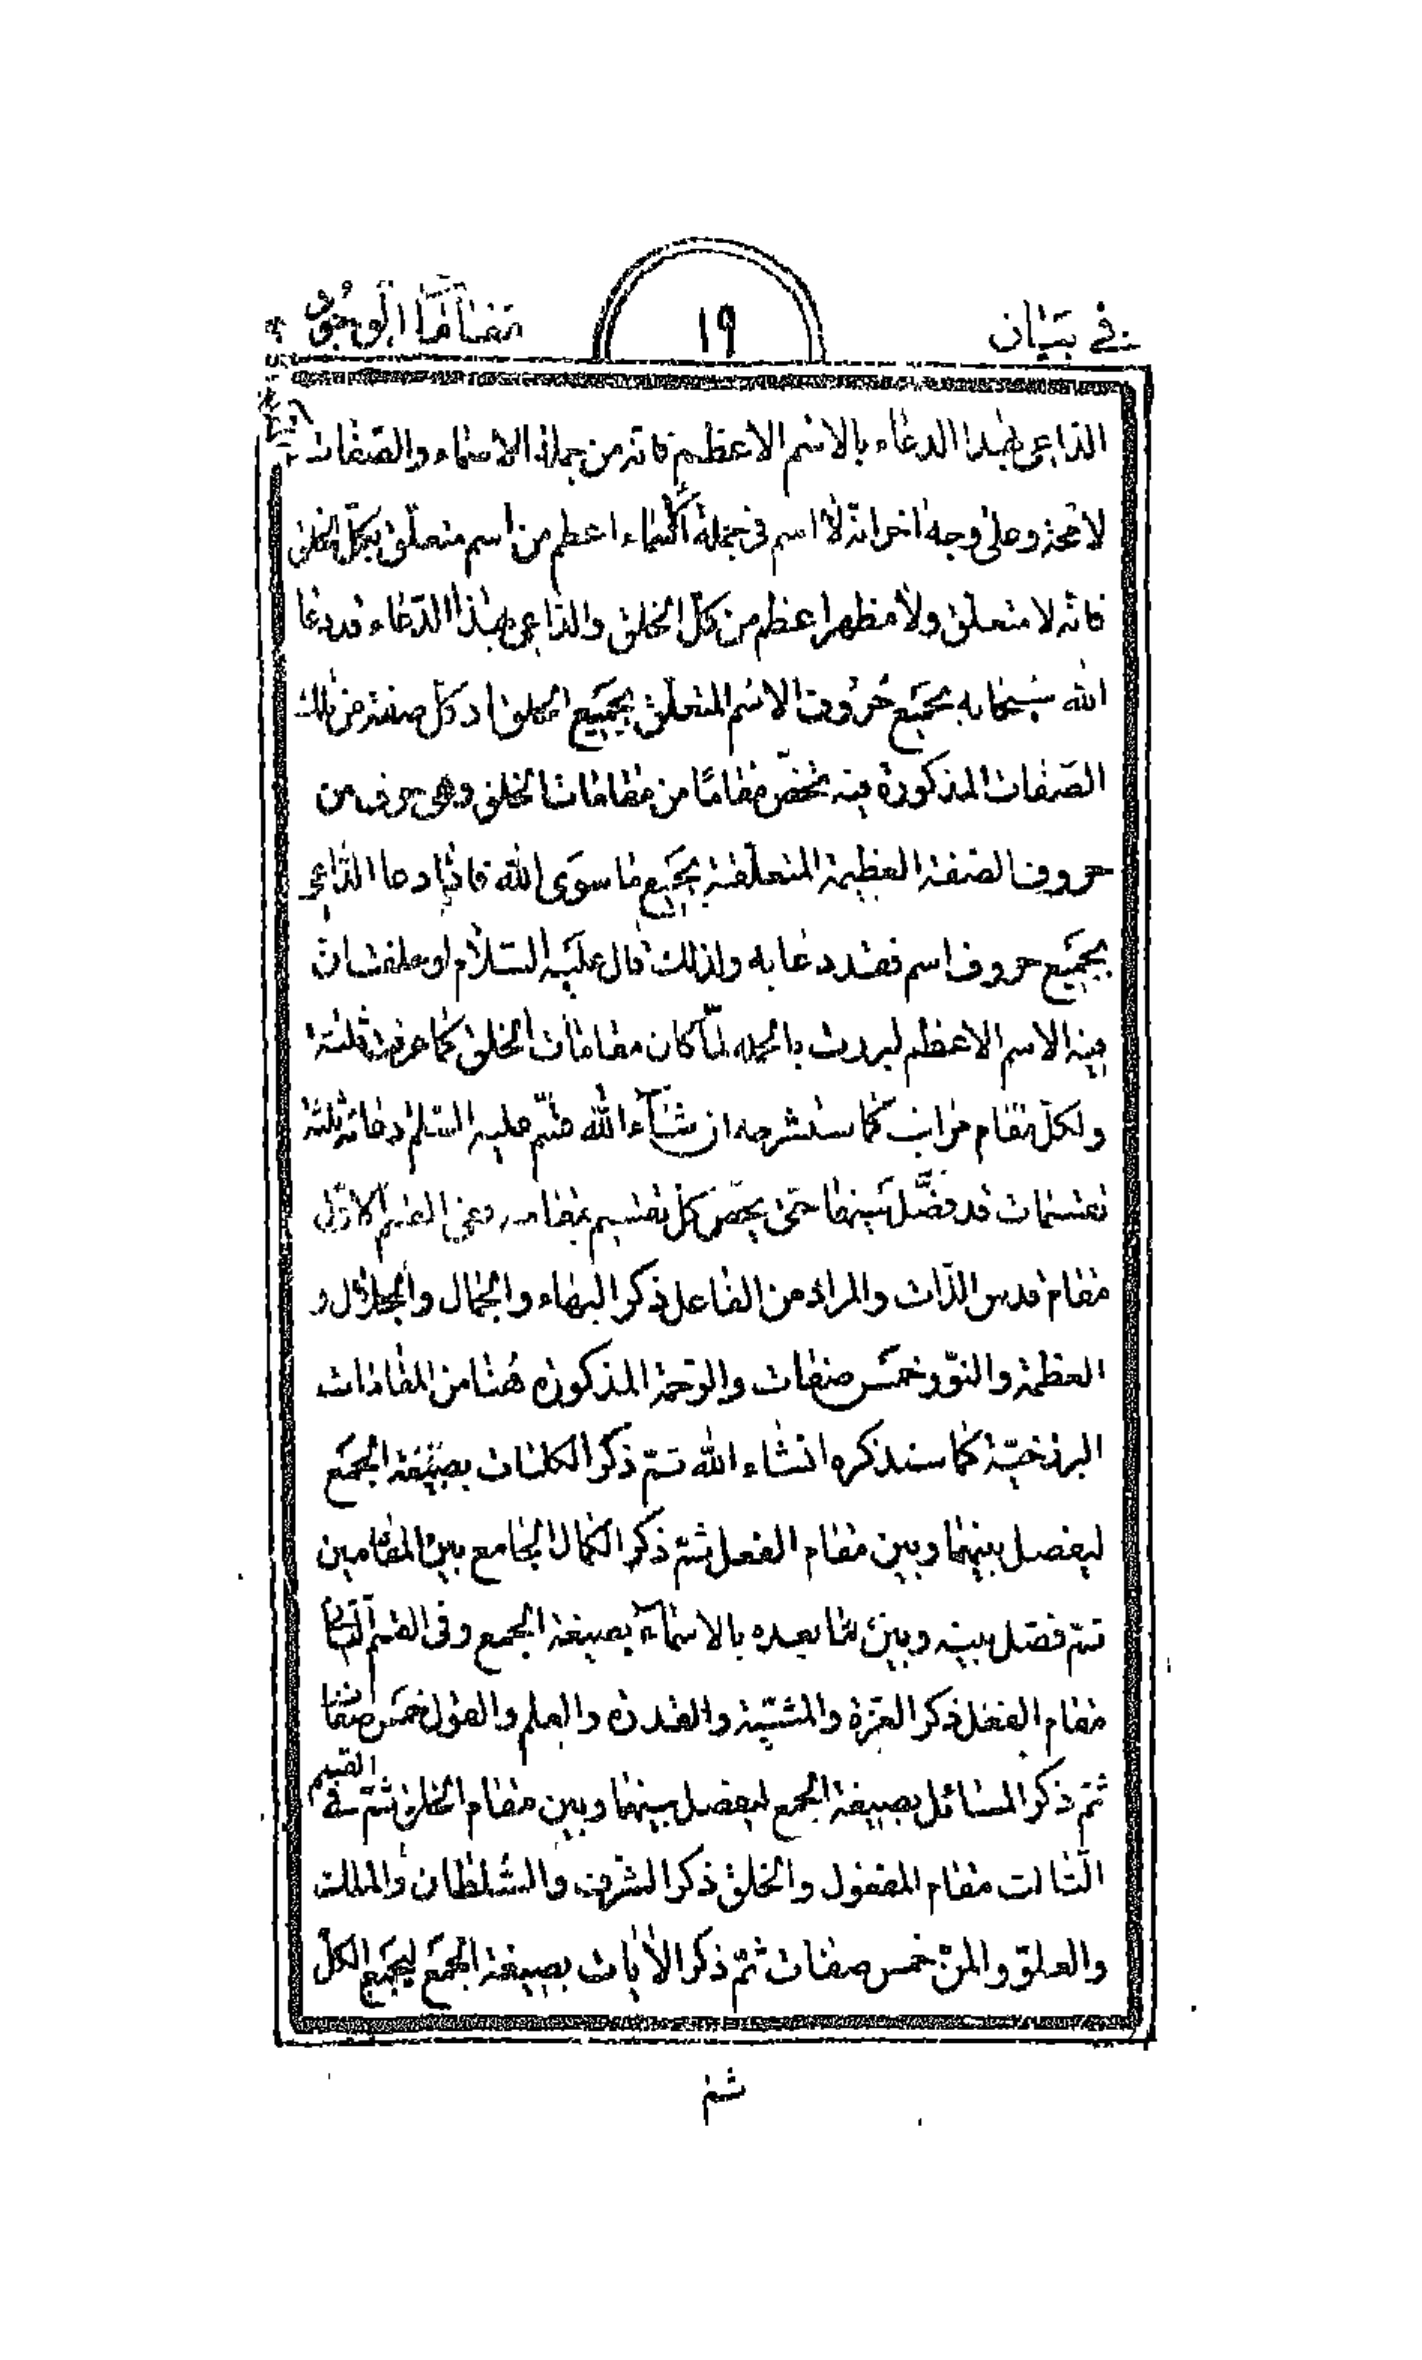 في بيان
١٩
مقامات الوجود
الداعى بهذا الدعاء بالاسم الاعظم فانه من جملة الاسماء والصفات
لا محة وعلى وجه اخر انه لا اسم فى جملة الاسماء اعظم من اسم متعلق بكل الخلق
فانه لا متعلق ولا مظهر اعظم من كل الخلق والداعى بهذا الدعاء قد دعا
الله سبحانه بجميع حروف الاسم المتعلق بجميع الخلق اذ كل صفة من تلك
الصفات المذكورة فيه يخص مقامًا من مقامات الخلق وهى حرف من
حروف الصفة العظيمة المتعلقة بجميع ما سوى الله فاذا دعا الداعى
بجميع حروف اسم فقد دعا به ولذلك قال عليه السلام لو حلفت ان
فيه الاسم الاعظم لبررت بالجمله لمّا كان مقامات الخلق كما عرفت ثلثة
ولكل مقام مراتب كما سنشرحه ان شآء الله قسّم عليه السلم دعائه ثلثة
تقسيمات قد فصّل بينها حتى يختص كل تقسيم بمقامه ففى القسم الاول
مقام قدس الذات والمراد من الفاعل ذكر البهاء والجمال والجلال و
العظمة والنّور خمس صفات والرحمة المذكورة هنا من المقامات
البرزخيّة كما سنذكره انشاء الله ثمّ ذكر الكلمات بصيغة الجمع
ليفصل بينها وبين مقام الفعل ثمّ ذكر الكمال الجامع بين المقامين
ثمّ فصّل بينه وبين ما بعده بالاسمآء بصيغة الجمع وفى القسم الثانى
مقام الفعل ذكر العزة والمشيّة والقدرة والعلم والقول خمس صفات
ثمّ ذكر المسائل بصيغة الجمع ليفصل بينها وبين مقام الخلق ثمّ فى القسم
الثالث مقام المفعول والخلق ذكر الشرف والسّلطان والملك
والعلوّ والمنّ خمس صفات ثمّ ذكر الأيات بصيغة الجمع ليجمع الكلّ
ثم